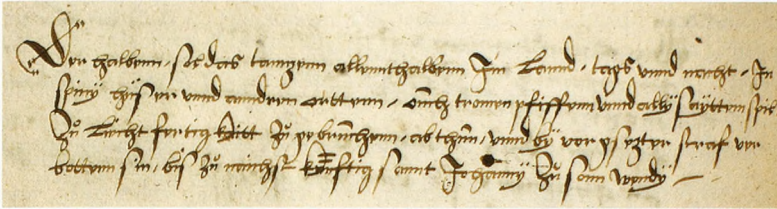 Der halbenn, so das tanzenn allennthalbenn Im Lannd, tags vnnd nacht, In
spinÿ hüseren vnnd anndren ortten, ouch tromen pfiffenn vnnd allÿ seÿttenn spil
Zů Liecht fertigkeitt Zů gebruchenn, ab thun, vnnd bÿ vor gseztter straf ver
botten sin, bis Zů nächst künftig sannt Johanns Zů sonn wendÿ